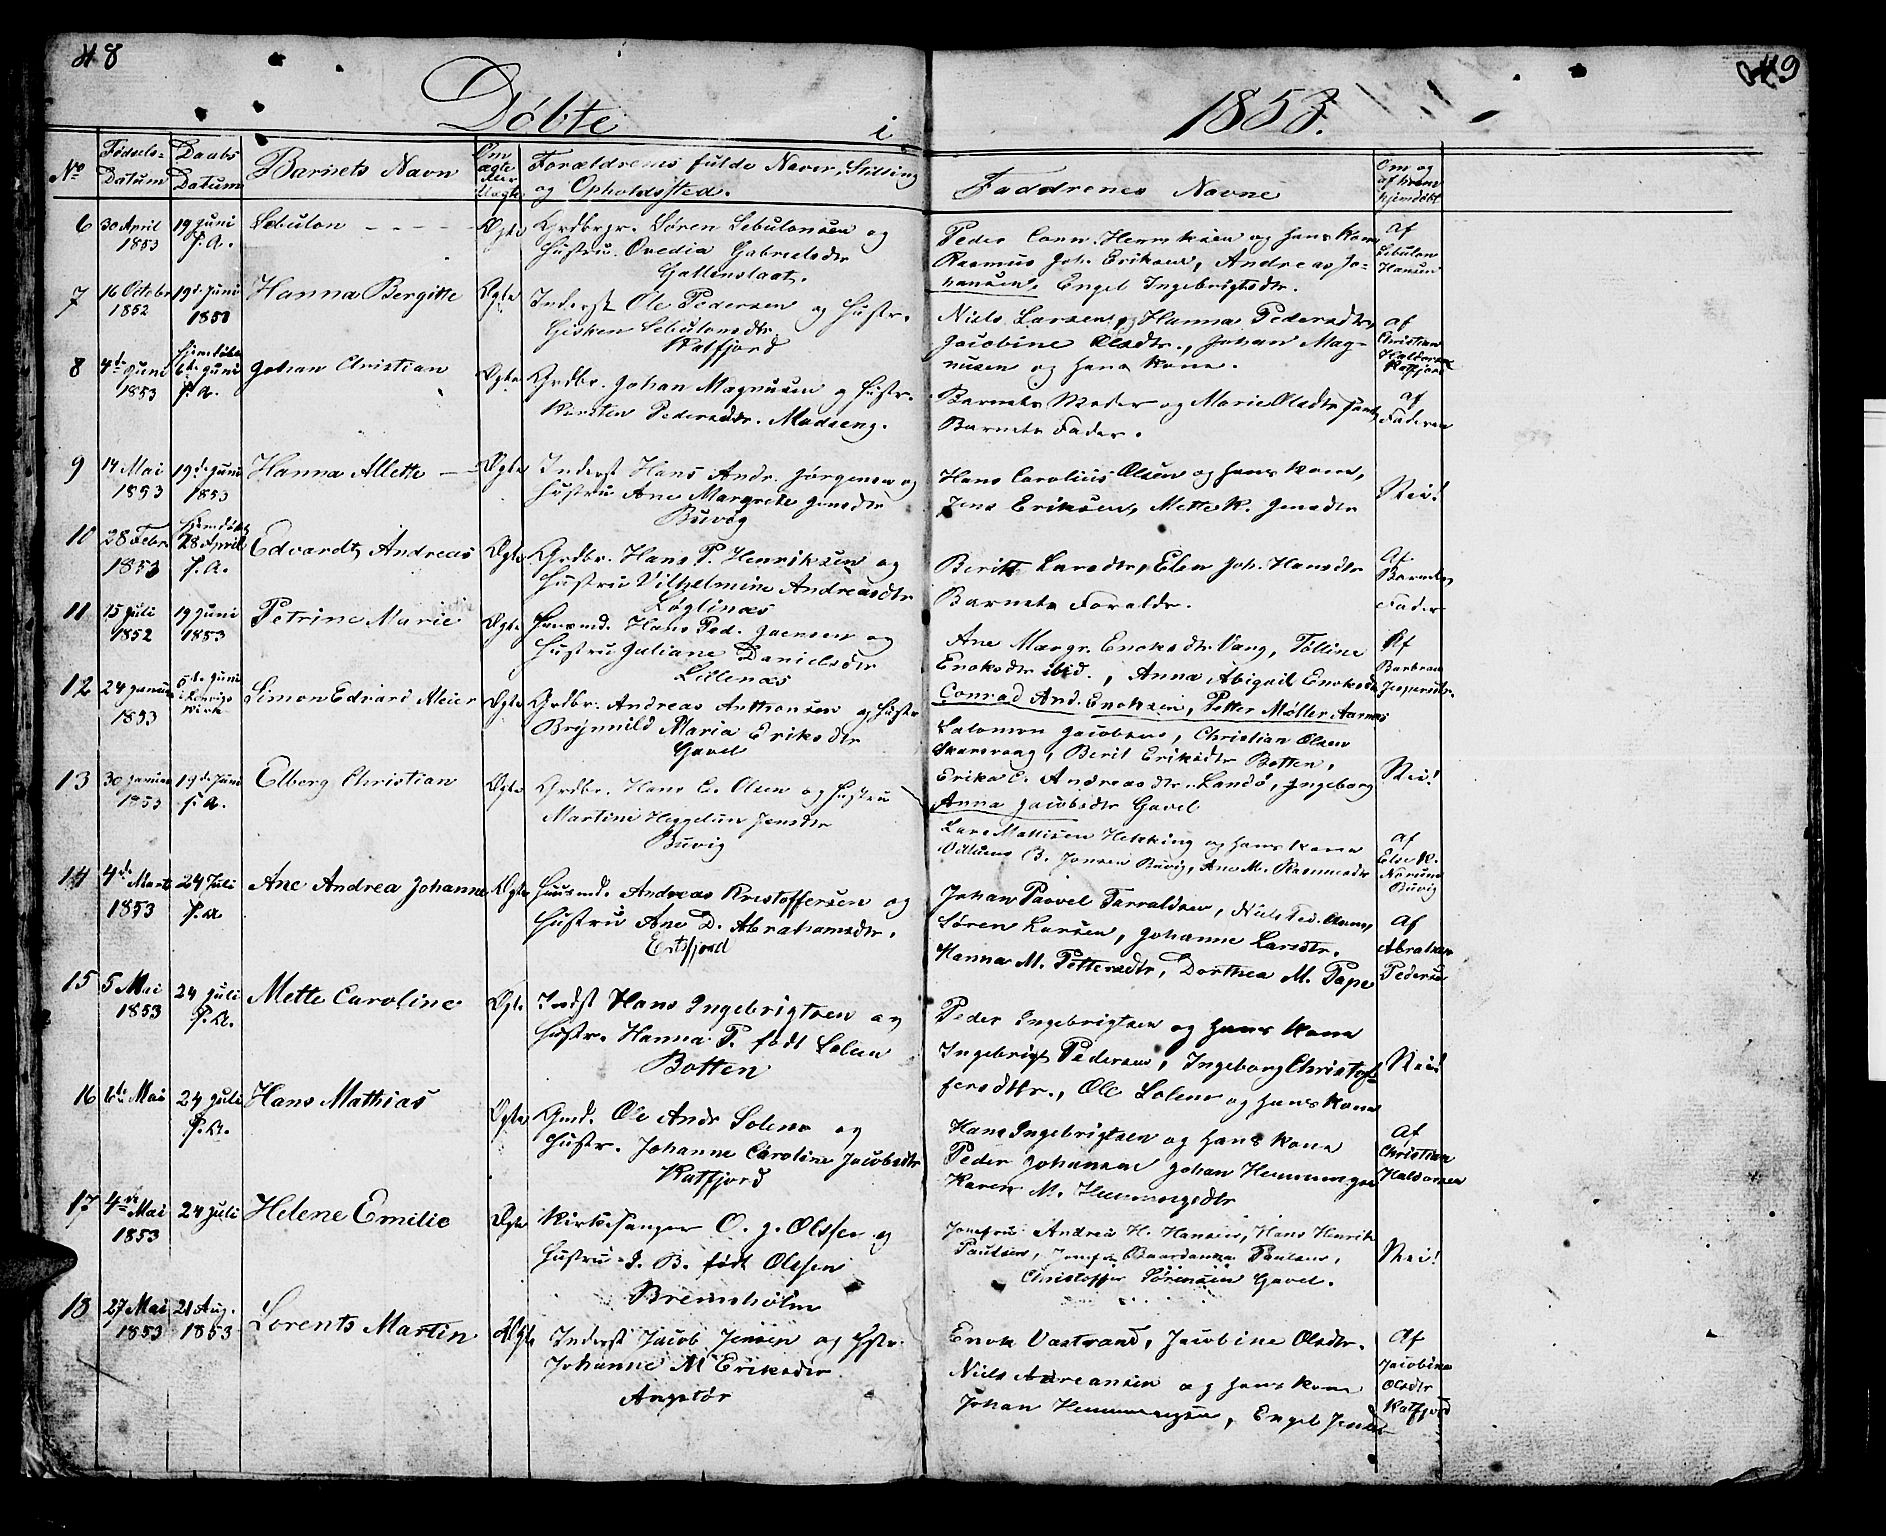 48
49
Döbte i 1853.
No
Fødsels-
Datum
Daabs
Datum
Barnets Navn
Om
ægte
eller
Uægte
Forældrenes fulde Navne, Stilling
og Opholdssted.
Faddrenes Navne
Om og
af hvem
hjemdøbt
6 30 April 19 Juni Sebulon Ægte Grdbrgr. Søren Sebulonsen og
1853 s. A. Hustru Ovedia Gabrielsdtr
Peder Conr. Henriksen og hans Kone
Rasmus Joh. Eriksen, Andreas Jo-
hansen, Engel Ingebrigtsdtr.
af
Sebulon
Hansen
7 16 Octobr 19de Juni Hanna Bergitte Ægte Inderst Ole Pedersen og Hustr.
1852 1853 Gisken Sebulonsdtr
Katfjord
Niels Larsen, og Hanna Pedersdtr,
Jacobine Olsdtr., Johan Mag-
nusen og hans Kone.
af
Christian
Haldorsen
Katfjord
8 4de Juni Hjemdøbt Johan Christian Ægte Grdbr. Johan Magnusen og Hustr.
1853 6te Juni s. A. Kirsten Pedersdtr. Madseng.
Barnets Moder og Marie Olsdtr samt
Barnets Fader.
af
Faderen
9 14 Mai 19de Juni Hanna Allette Ægte Inderst Hans Andr. Jørgensen og
1853 1853 Hustru Ane Margrete Jensdtr
Buvig
Hans Carolius Olsen og hans Kone,
Jens Eriksen, Mette K. Jensdtr
Nei!
10 28 Febr Hjemdøbt Edvardt Andreas Ægte Grdbr. Hans P. Henriksen og
1853 28 April s. A. Hustru Vilhelmine Andreasdtr
Løglinæs
Berith Larsdtr, Elen Joh. Hansdtr
Barnets Foraldr.
Af
Barnets
Fader
11 15 Juli 19 Juni Petrine Marie Ægte Huusmd. Hans Ped. Jaensen og
1852 1853 Hustru Juliane Danielsdtr
Lillenæs
Ane Margr. Enoksdtr Vang, Tolline
Enoksdtr ibid., Anna Abigail Enoksdtr
Conrad And. Enoksen, Petter Møller Aarnæs
Af
Barbroe
Jespersdtr.
12 24 Januar 5de Juni Simon Edvard Meier Ægte Grdbr. Andreas Anthonsen og Hustr
1853 i Kirke Brynnild Maria Eriksdtr
Gavel
Salomon Jacobsen, Christian Olsen
Skarsvaag, Berit Eriksdtr Botten,
Erika C. Andreasdtr. Landø, Ingeborg
Anna Jacobsdtr Gavel
Nei!
13 30 Januar 19de Juni Elberg Christian Ægte Grdbr. Hans C. Olsen og Hustru
1853 s. A. Martine Heggelun Jensdtr
Buvig
Lars Mathisen Hekking og hans Kone
B. Jonsen Buvig, Ane M. Rasmusdtr
af
Else K.
Buvig
14 4de Marts 24 Juli Ane Andrea Johanne Ægte Huusmd. Andreas Kristoffersen og
1853 s. A. Hustru Ane D. Abrahamsdtr.
Ertsfjord
Johan Paavel Tarraldsen, Niels Ped.
Søren Larsen, Johanne Larsdtr.
Hanna M. Pettersdtr, Dorthea M. Pape
Af
Abraham
Pedersen
15 5 Mai 24 Juli Mette Caroline Ægte Indst Hans Ingebrigtsen og
1853 s. A. Hustr. Hanna P. født Solem
Botten
Peder Ingebrigtsen og hans Kone
Ingebrigt Pedersen, Ingeborg Christof-
fersdtr., Ole Solem og hans Kone
Nei!
16 6te Mai 24 Juli Hans Mathias Ægte Gmd. Ole Andr Solem og
s. A. Hustr. Johanne Caroline Jacobsdtr
Katfjord
Hans Ingebrigtsen og hans Kone
Peder Johansen Johan Hemmingsen
Karen M. Hemmingsdtr
Af
Christian
Haldorsen
17 4de Mai 24 Juli Helene Emilie Ægte Kirkesanger O. J. Olssen og
1853 Hustru J. B. født Olssen
Bremsholm
Jomfru Andrea H. Hansen, Hans Henrik
Paulsen, Jomfru Baardanna Paulsen,
Christoffer Sørensen Gavel.
Nei!
18 27 Mai 21 Aug. Lorents Martin Ægte Inderst Jacob Jensen og Hstr.
1853 1853 Johanne M Eriksdtr.
Angstør
Enok Vastrand, Jacobine Olsdtr.
Niels Adreansen og hans Kone
Johan Hemmingsen, Engel Jensdtr
Af
Jacobine
Olsdtr
Katfjord